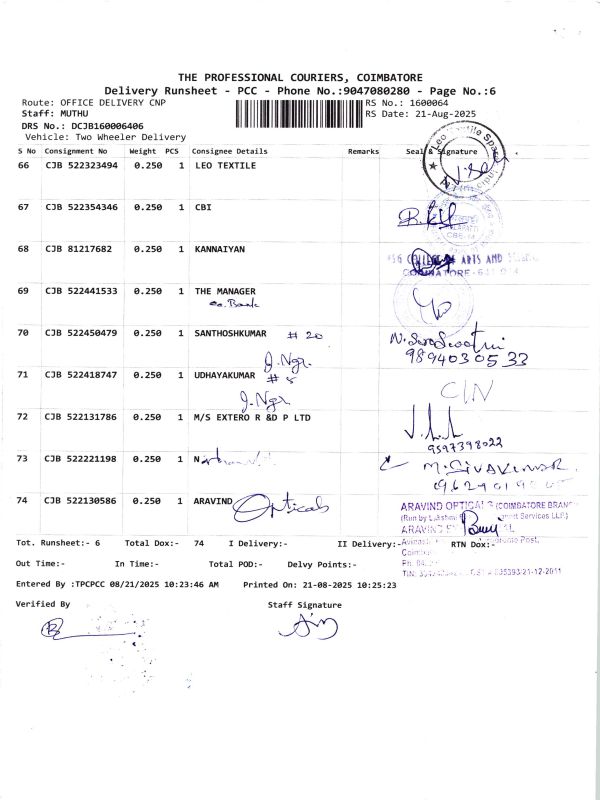 THE PROFESSIONAL COURIERS, COIMBATORE
Delivery Runsheet - PCC - Phone No.:9047080280 - Page No.:6
Route: OFFICE DELIVERY CNP RS No.: 1600064
Staff: MUTHU RS Date: 21-Aug-2025
DRS No.: DCJB160006406
Vehicle: Two Wheeler Delivery
S No Consignment No Weight PCS Consignee Details Remarks Seal & Signature
66 CJB 522323494 0.250 1 LEO TEXTILE
67 CJB 522354346 0.250 1 CBI
68 CJB 81217682 0.250 1 KANNAIYAN
ARTS AND
69 CJB 522441533 0.250 1 THE MANAGER
co. Bank
70 CJB 522450479 0.250 1 SANTHOSHKUMAR # 20
J. Ngr. 9894030533
71 CJB 522418747 0.250 1 UDHAYAKUMAR # 5
J. Ngr.
72 CJB 522131786 0.250 1 M/S EXTERO R &D P LTD
9597398022
73 CJB 522221198 0.250 1 N M. SIVAKUMAR
74 CJB 522130586 0.250 1 ARAVIND Opticals
ARAVIND OPTICALS (COIMBATORE
Tot. Runsheet:- 6 Total Dox:- 74 I Delivery:- II Delivery:- RTN Dox:-
Out Time:- In Time:- Total POD:- Delvy Points:-
Entered By :TPCPCC 08/21/2025 10:23:46 AM Printed On: 21-08-2025 10:25:23
Verified By Staff Signature